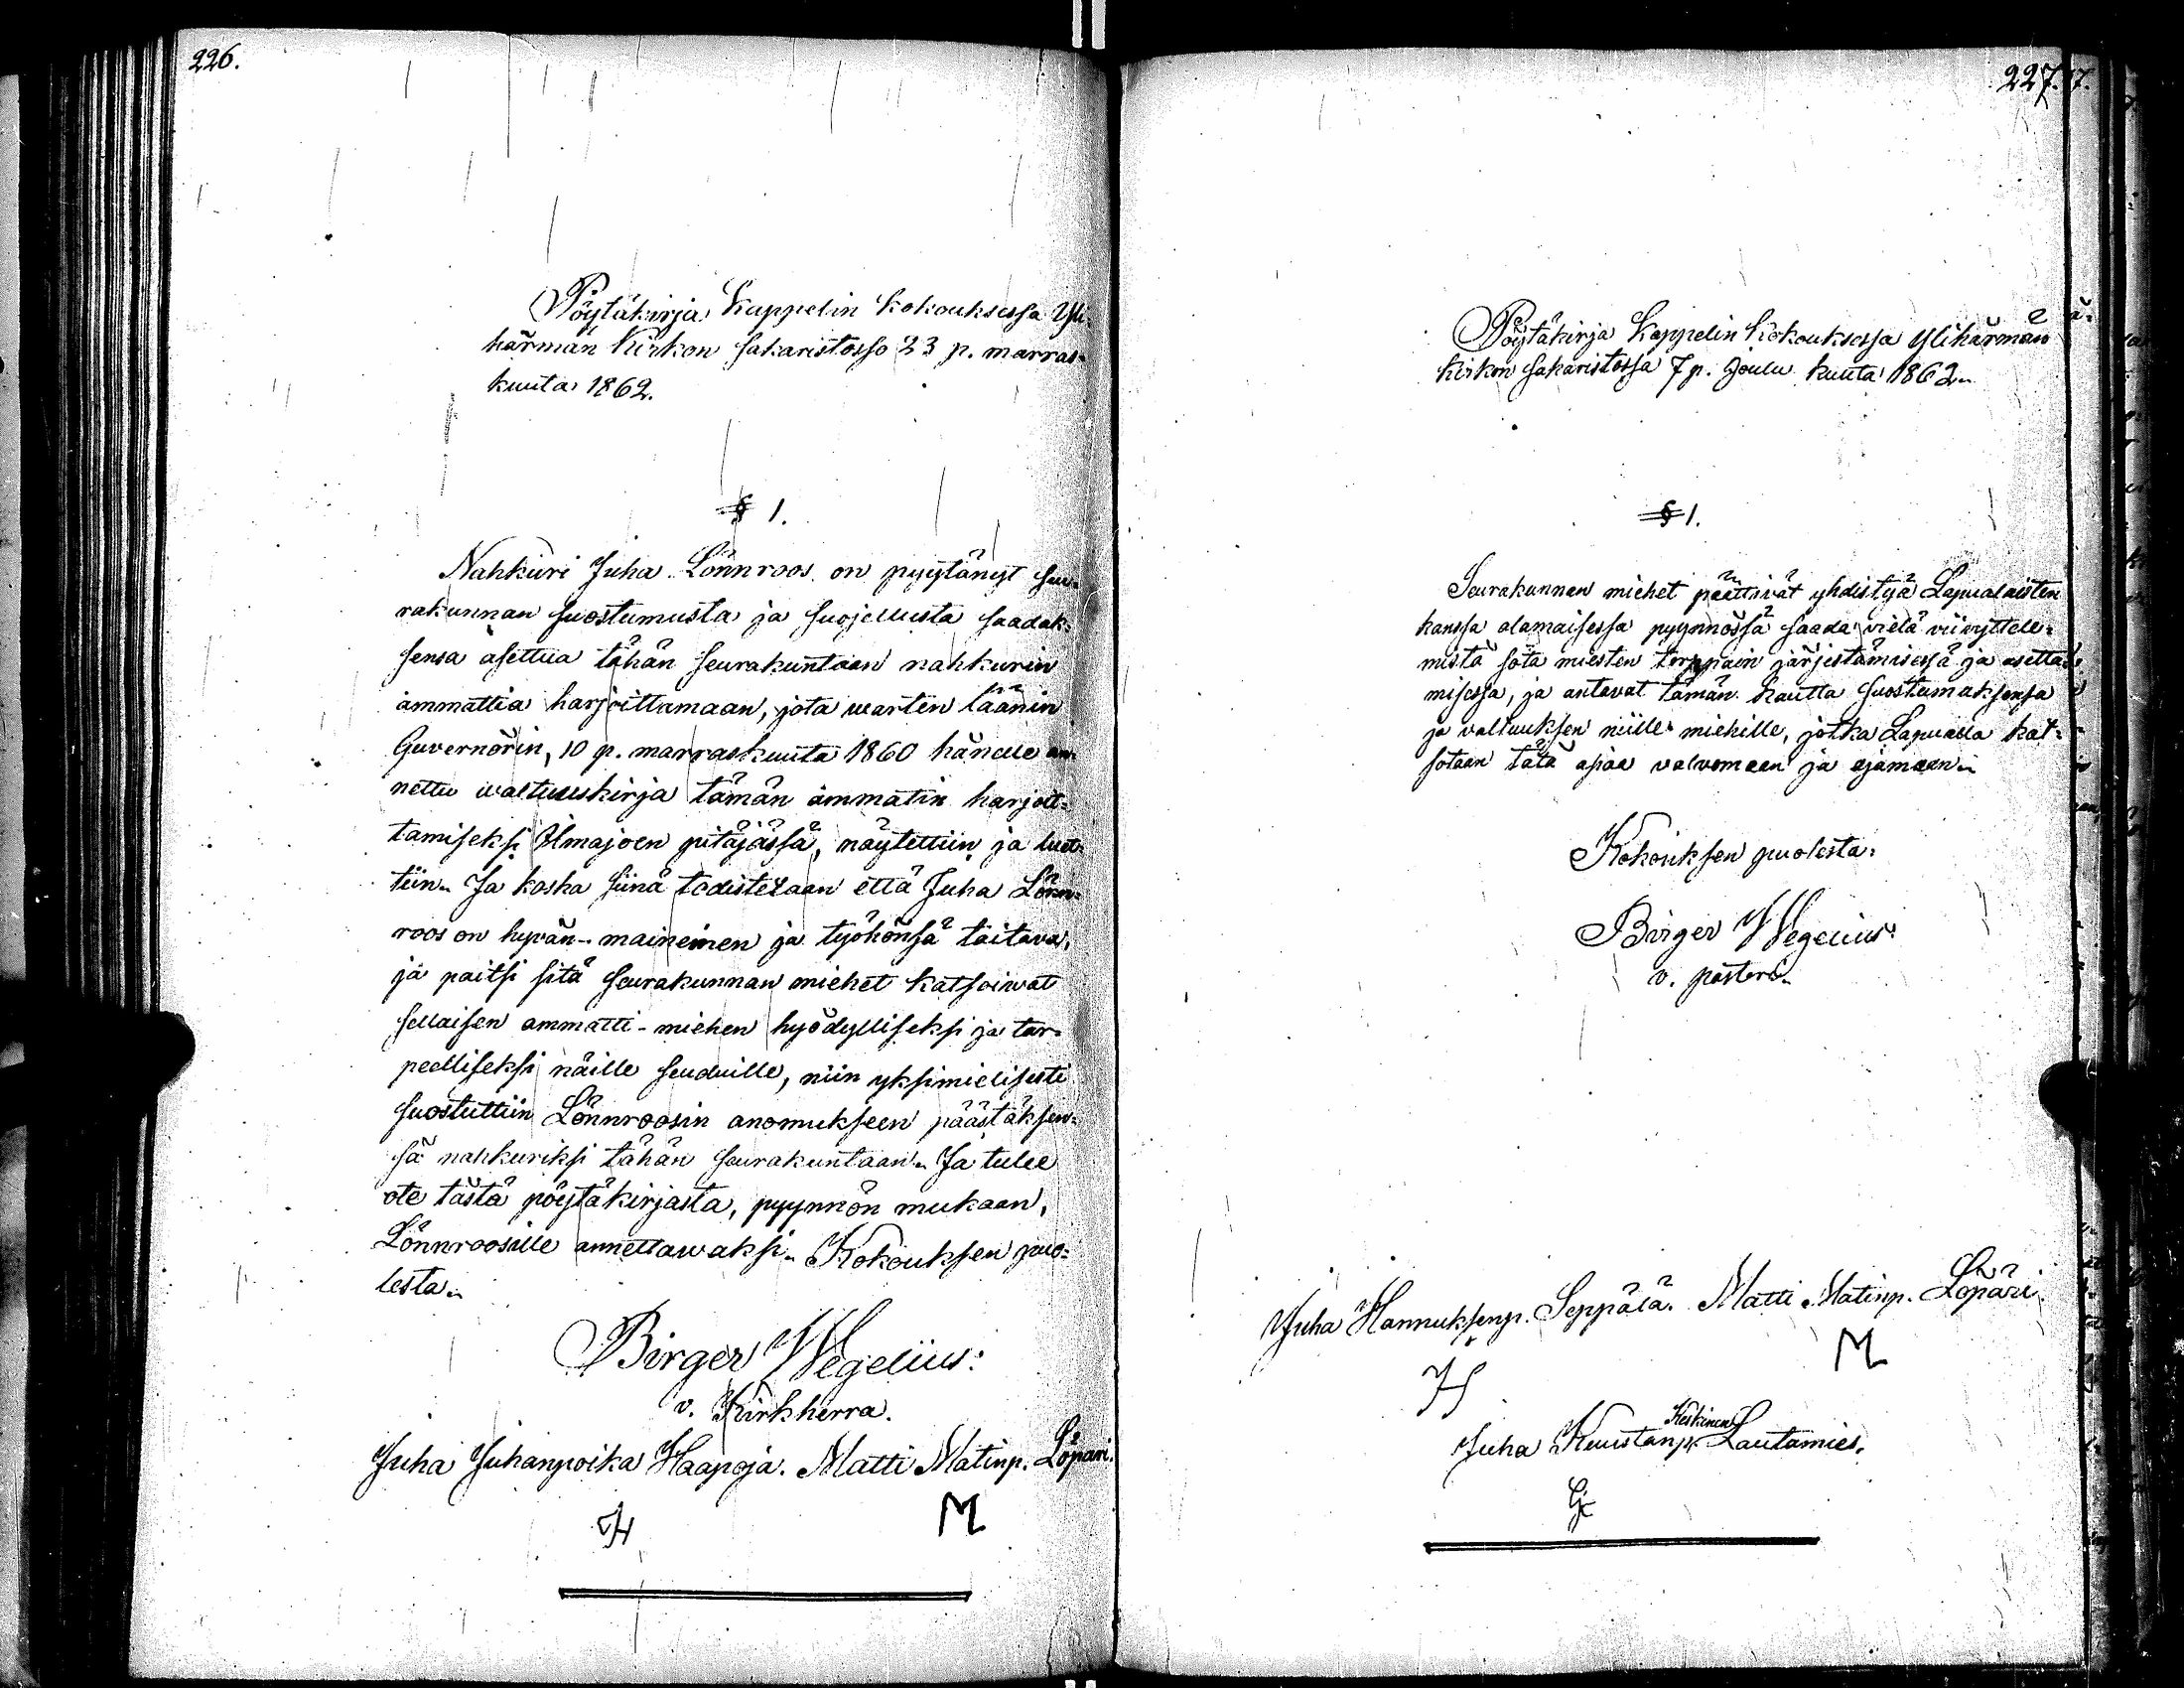 226.
Pöytäkirja Kappelin kokouksessa Yli-
härmän Kirkon sakaristossa 23 p. marras-
kuuta 1862.
§ 1.
Nahkuri Juha Lönnroos on pyytänyt seu-
rakunnan suostumusta ja suojellusta saadak-
sensa asettua tähän seurakuntaan nahkurin
ammattia harjoittamaan, jota warten läänin
Guvernörin, 10 p. marraskuuta 1860 hänelle an-
nettu waltuuskirja tämän ammatin harjoit-
tamiseksi Ilmajoen pitäjässä, näytettiin ja luet-
tiin. Ja koska siinä todistetaan että Juha Lönn-
roos on hywän-maineinen ja työhönsä taitava,
ja paitsi sitä seurakunnan miehet katsoiwat
sellaisen ammatti-miehen hyödylliseksi ja tar-
peelliseksi näille seuduille, niin yksimielisesti
suostuttiin Lönnroosin anomukseen päästäksen-
sä nahkuriksi tähän seurakuntaan. Ja tulee
ote tästä pöytäkirjasta, pyynnön mukaan,
Lönnroosille annettawaksi. Kokouksen puo-
lesta.
Birger Wegelius:
v. Kirkherra.
Juha Juhanpoika Haapoja. Matti Matinp. Löpäri.
JH M
227.
Pöytäkirja Kappelin kokouksessa Ylihärmän
kirkon sakaristossa 7 p. Joulu kuuta 1862.
§ 1.
Seurakunnan miehet päättivät yhdistyä Lapualaisten
kanssa alamaisessa pyynnössä saada vielä viivyttele-
mistä sota miesten torppain järjestämisessä ja asetta-
misessa, ja antavat tämän kautta suostumaksensa
ja valtuuksen niille miehille, jotka Lapualla kat-
sotaan tätä asiaa valvomaan ja ajamaan.
Kokouksen puolesta:
Birger Wegelius:
v. pastori.
Juha Hannuksenp. Seppälä. Matti Matinp. Löpäri.
H M
Keskinen
Juha Kuustanp. Lautamies.